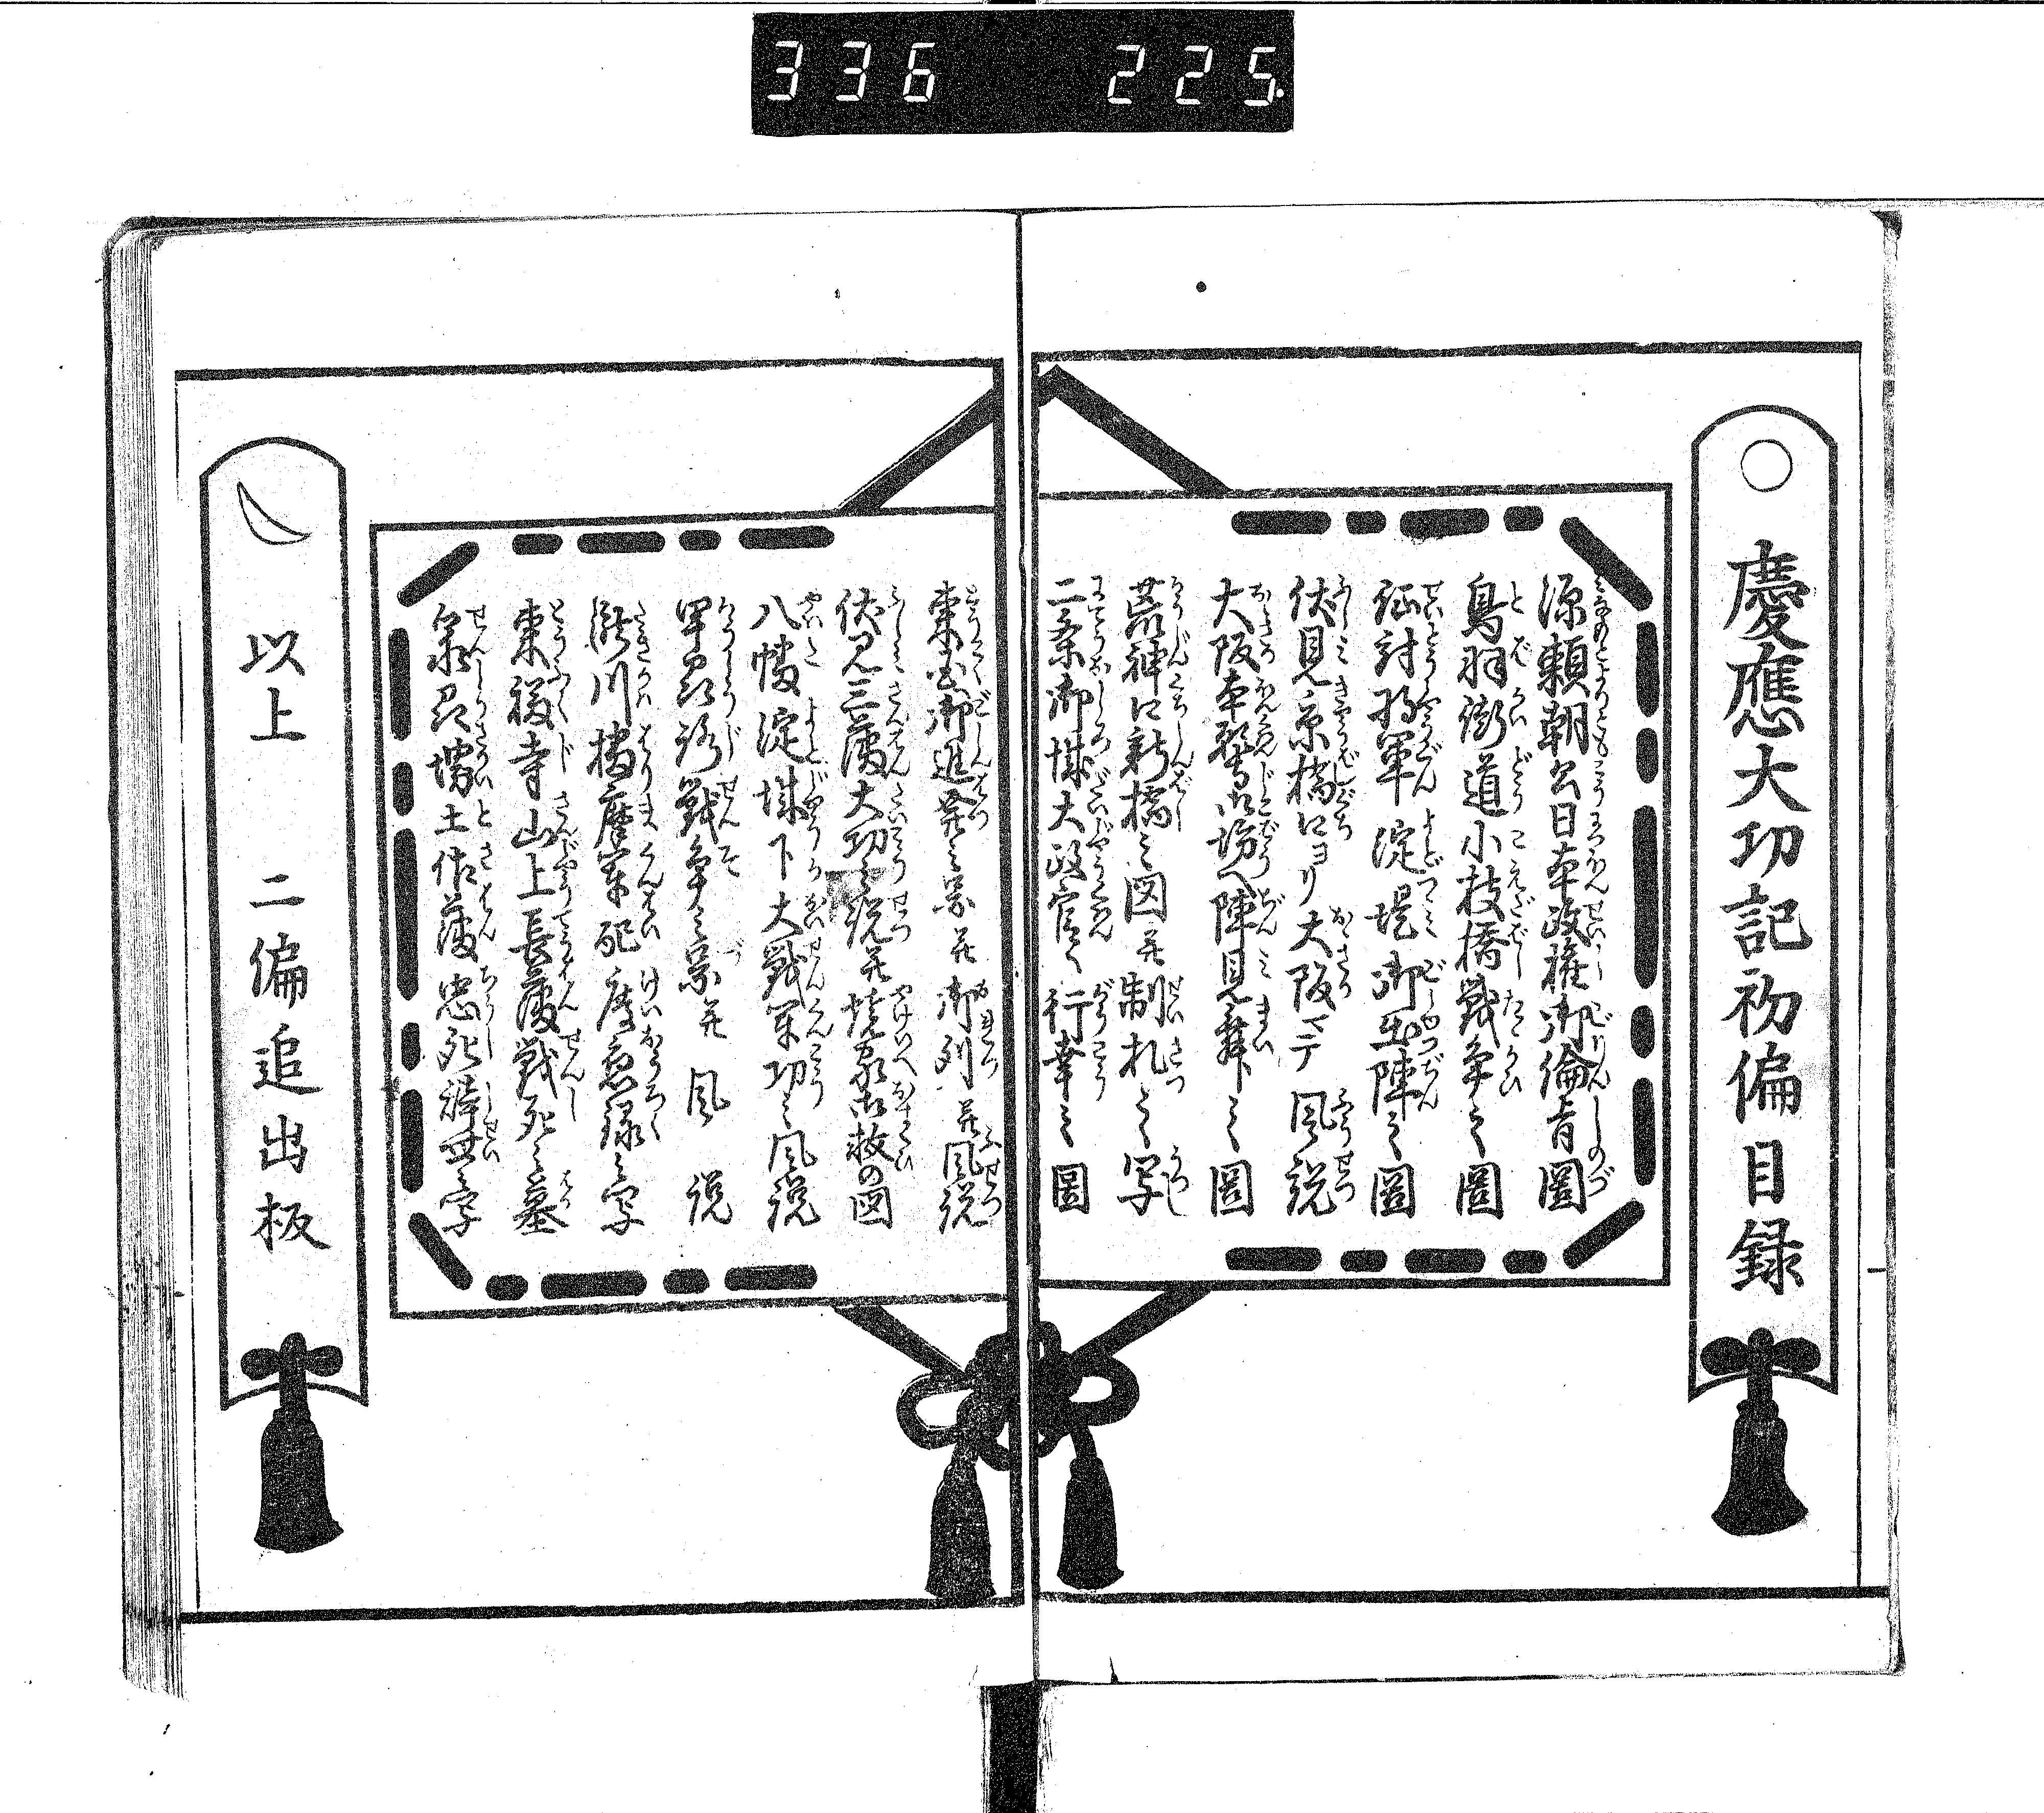 336 225
慶應大功記初偏目録
源頼朝公日本政権御倫旨圖
鳥羽街道小枝橋戦争之圖
征討将軍淀堤御出陣之圖
伏見京橋口ヨリ大阪マテ風説
大阪本営御場へ陣見舞之圖
荒神口新橋之図并制札之写
二条御城大政官へ行幸之圖
東国御進發之景并御列并風説
伏見三藩大功之説并焼家御救の図
八幡淀城下大戦軍功之風説
甲州路戦争之景并風説
瀧川播磨軍配慶應録之写
東福寺山上長藩戦死之墓
泉州堺土佐藩忠死辞世之写
以上 二偏追出板